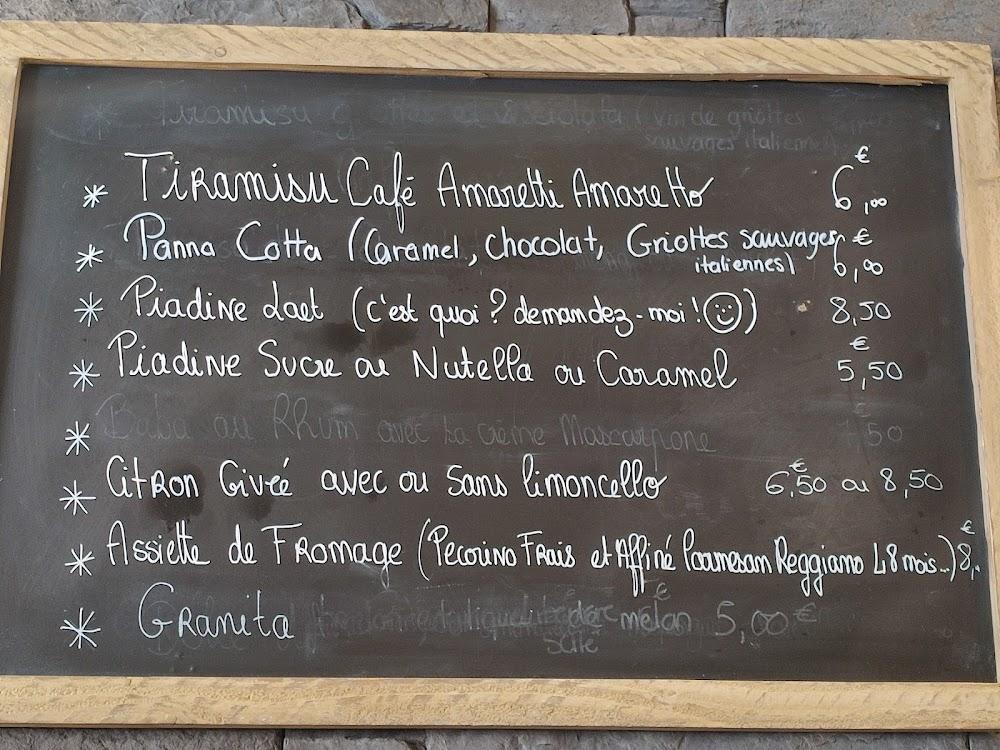 Tiramisu g
(vin de griottes
sauvages italiennes)
* Tiramisu Café Amaretti Amaretto 6,00 €
* Panna Cotta (Caramel, Chocolat, Griottes sauvages italiennes) 6,00 €
* Piadine Laet (c'est quoi? demandez-moi! ☺) 8,50
* Piadine Sucre ou Nutella ou Caramel 5,50 €
* Baba au Rhum avec sa crème Mascarpone 7,50 €
* Citron Givré avec ou sans limoncello 6,50 ou 8,50 €
* Assiette de Fromage (Pecorino Frais et Affiné Parmesam Reggiano 48 mois...) 8, €
* Granita de melon 5,00 €
salé